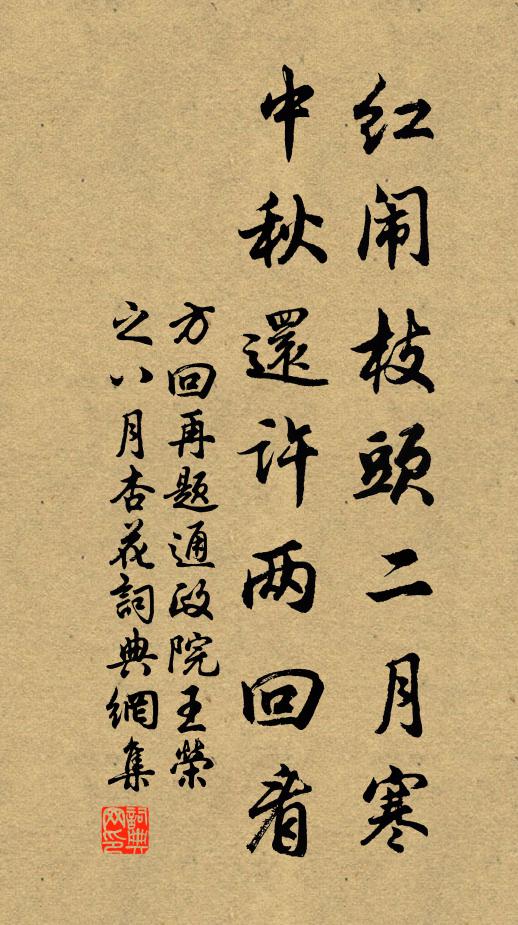 红闹枝頭二月寒
中秋還许两回看
方回再题通政院王榮
之八月杏花詞典網集
詞典网印